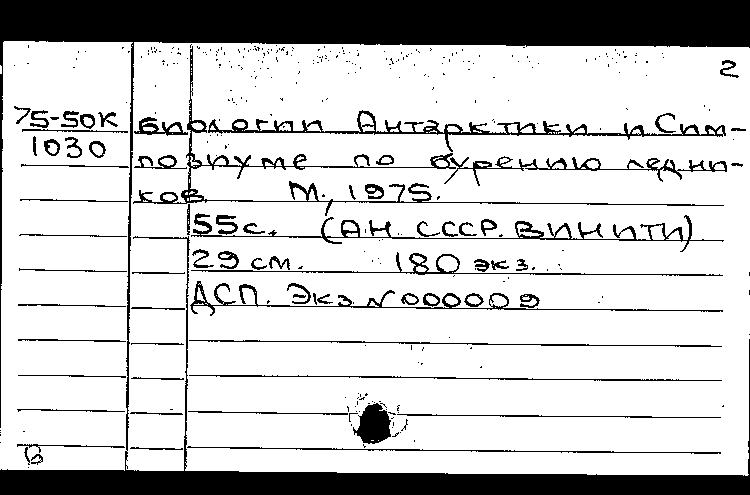 2
75-50К биологии Антарктики и Сим-
1030 позиуме по бурению ледни-
ков. М., 1975.
55с. (АН. СССР. ВИНИТИ)
29 см. 180 экз.
ДСП. Экз № 000009
В